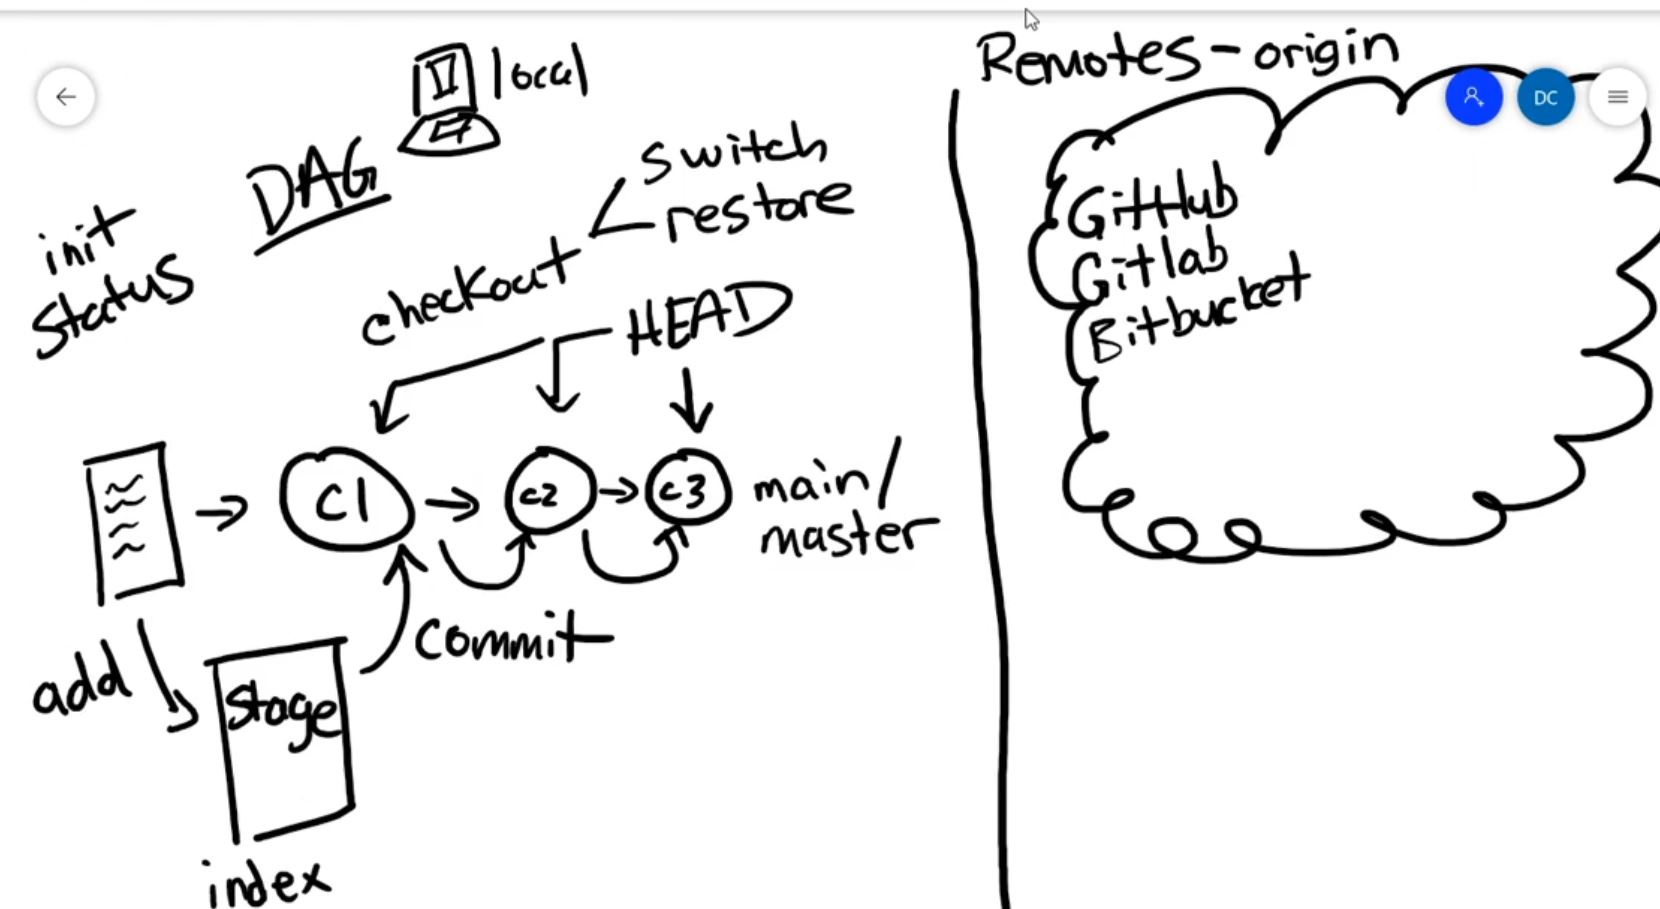 local
DAG
init
status
switch
restore
checkout
HEAD
c1
c2
c3
main/
master
commit
add
stage
index
Remotes - origin
GitHub
Gitlab
Bitbucket
DC